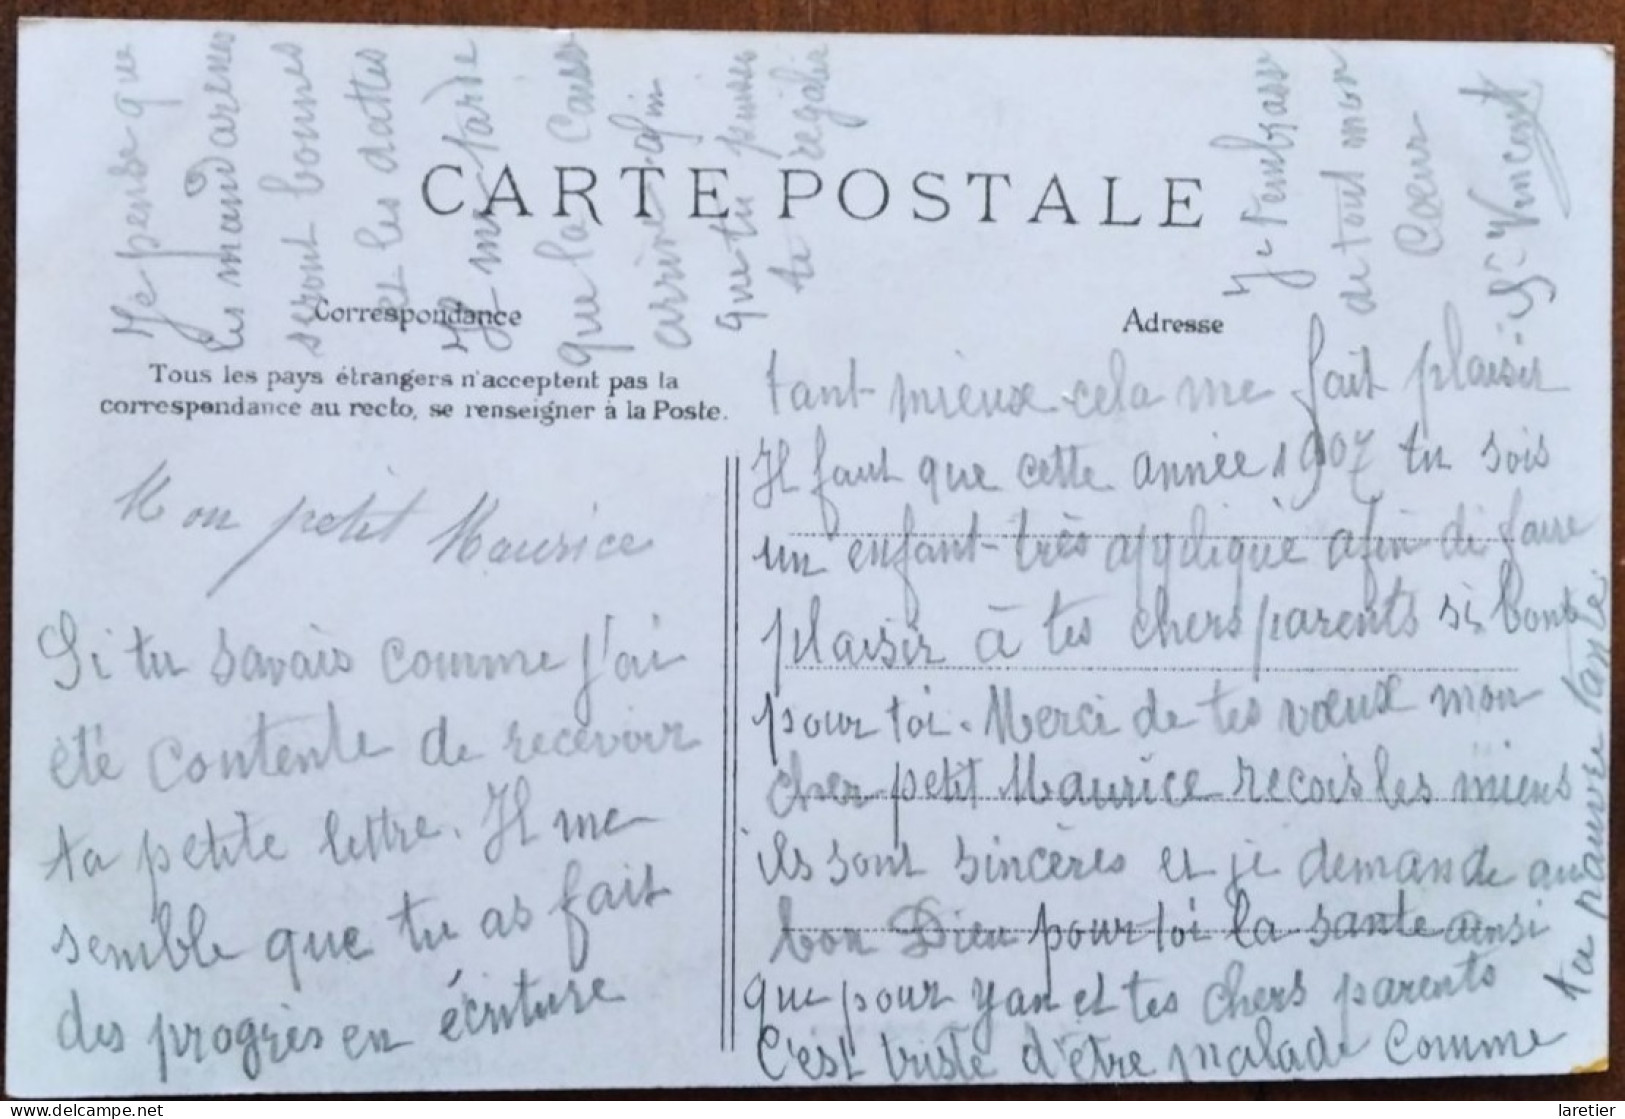 CARTE POSTALE
Correspondance
Tous les pays étrangers n'acceptent pas la
correspondance au recto, se renseigner à la Poste.
Adresse
Mon petit Maurice
Si tu savais comme j'ai
été contente de recevoir
ta petite lettre. Il me
semble que tu as fait
des progrès en écriture
tant mieux cela me fait plaisir
Il faut que cette année 1907 tu sois
un enfant très appliqué afin di faire
plaisir à tes chers parents si bons
pour toi. Merci de tes vœux mon
cher petit Maurice recois les miens
ils sont sincères et je demande au
bon Dieu pour toi la sante ainsi
que pour yan et tes chers parents
C'est triste d'être malade comme
ta pauvre tante.
Je pense que
les mandarenes
seront bonnes
et les dattes
Il me tarde
que la caisse
arrive afin
que tu puisses
te régaler
Je t'embrasse
de tout mon
Cœur
Sr Vincent
laretier